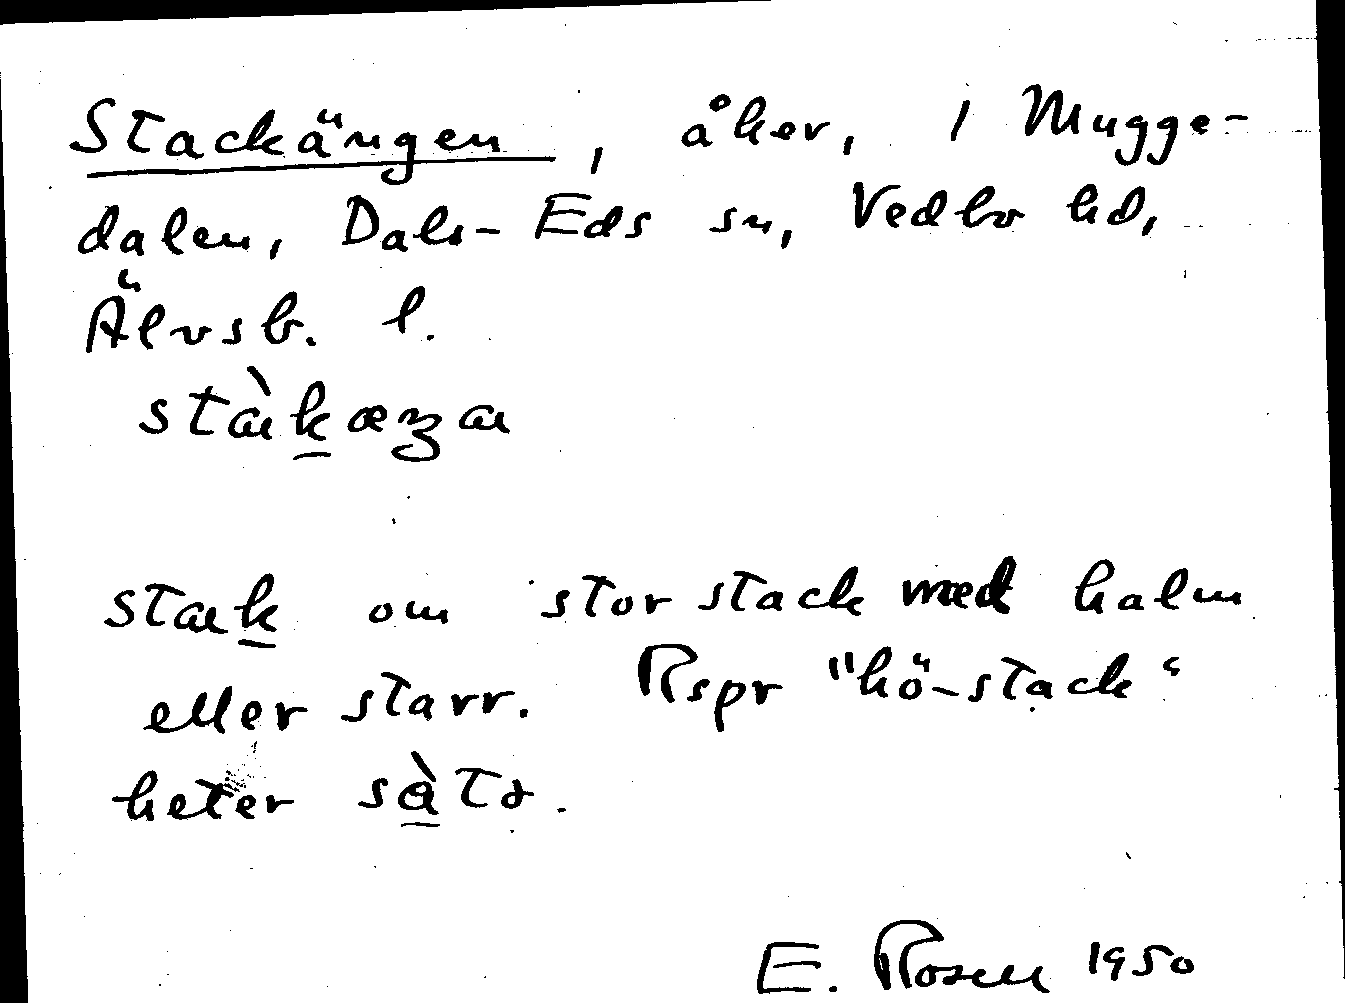 Stackängen, åker, 1 Mugge-
dalen, Dals-Eds sn, Vedbo hd,
Älvsb. l.
stàkæŋa
stak om stor stack med halm
eller starr. Rspr "hö-stack"
heter sàtə.
E. Rosell 1950